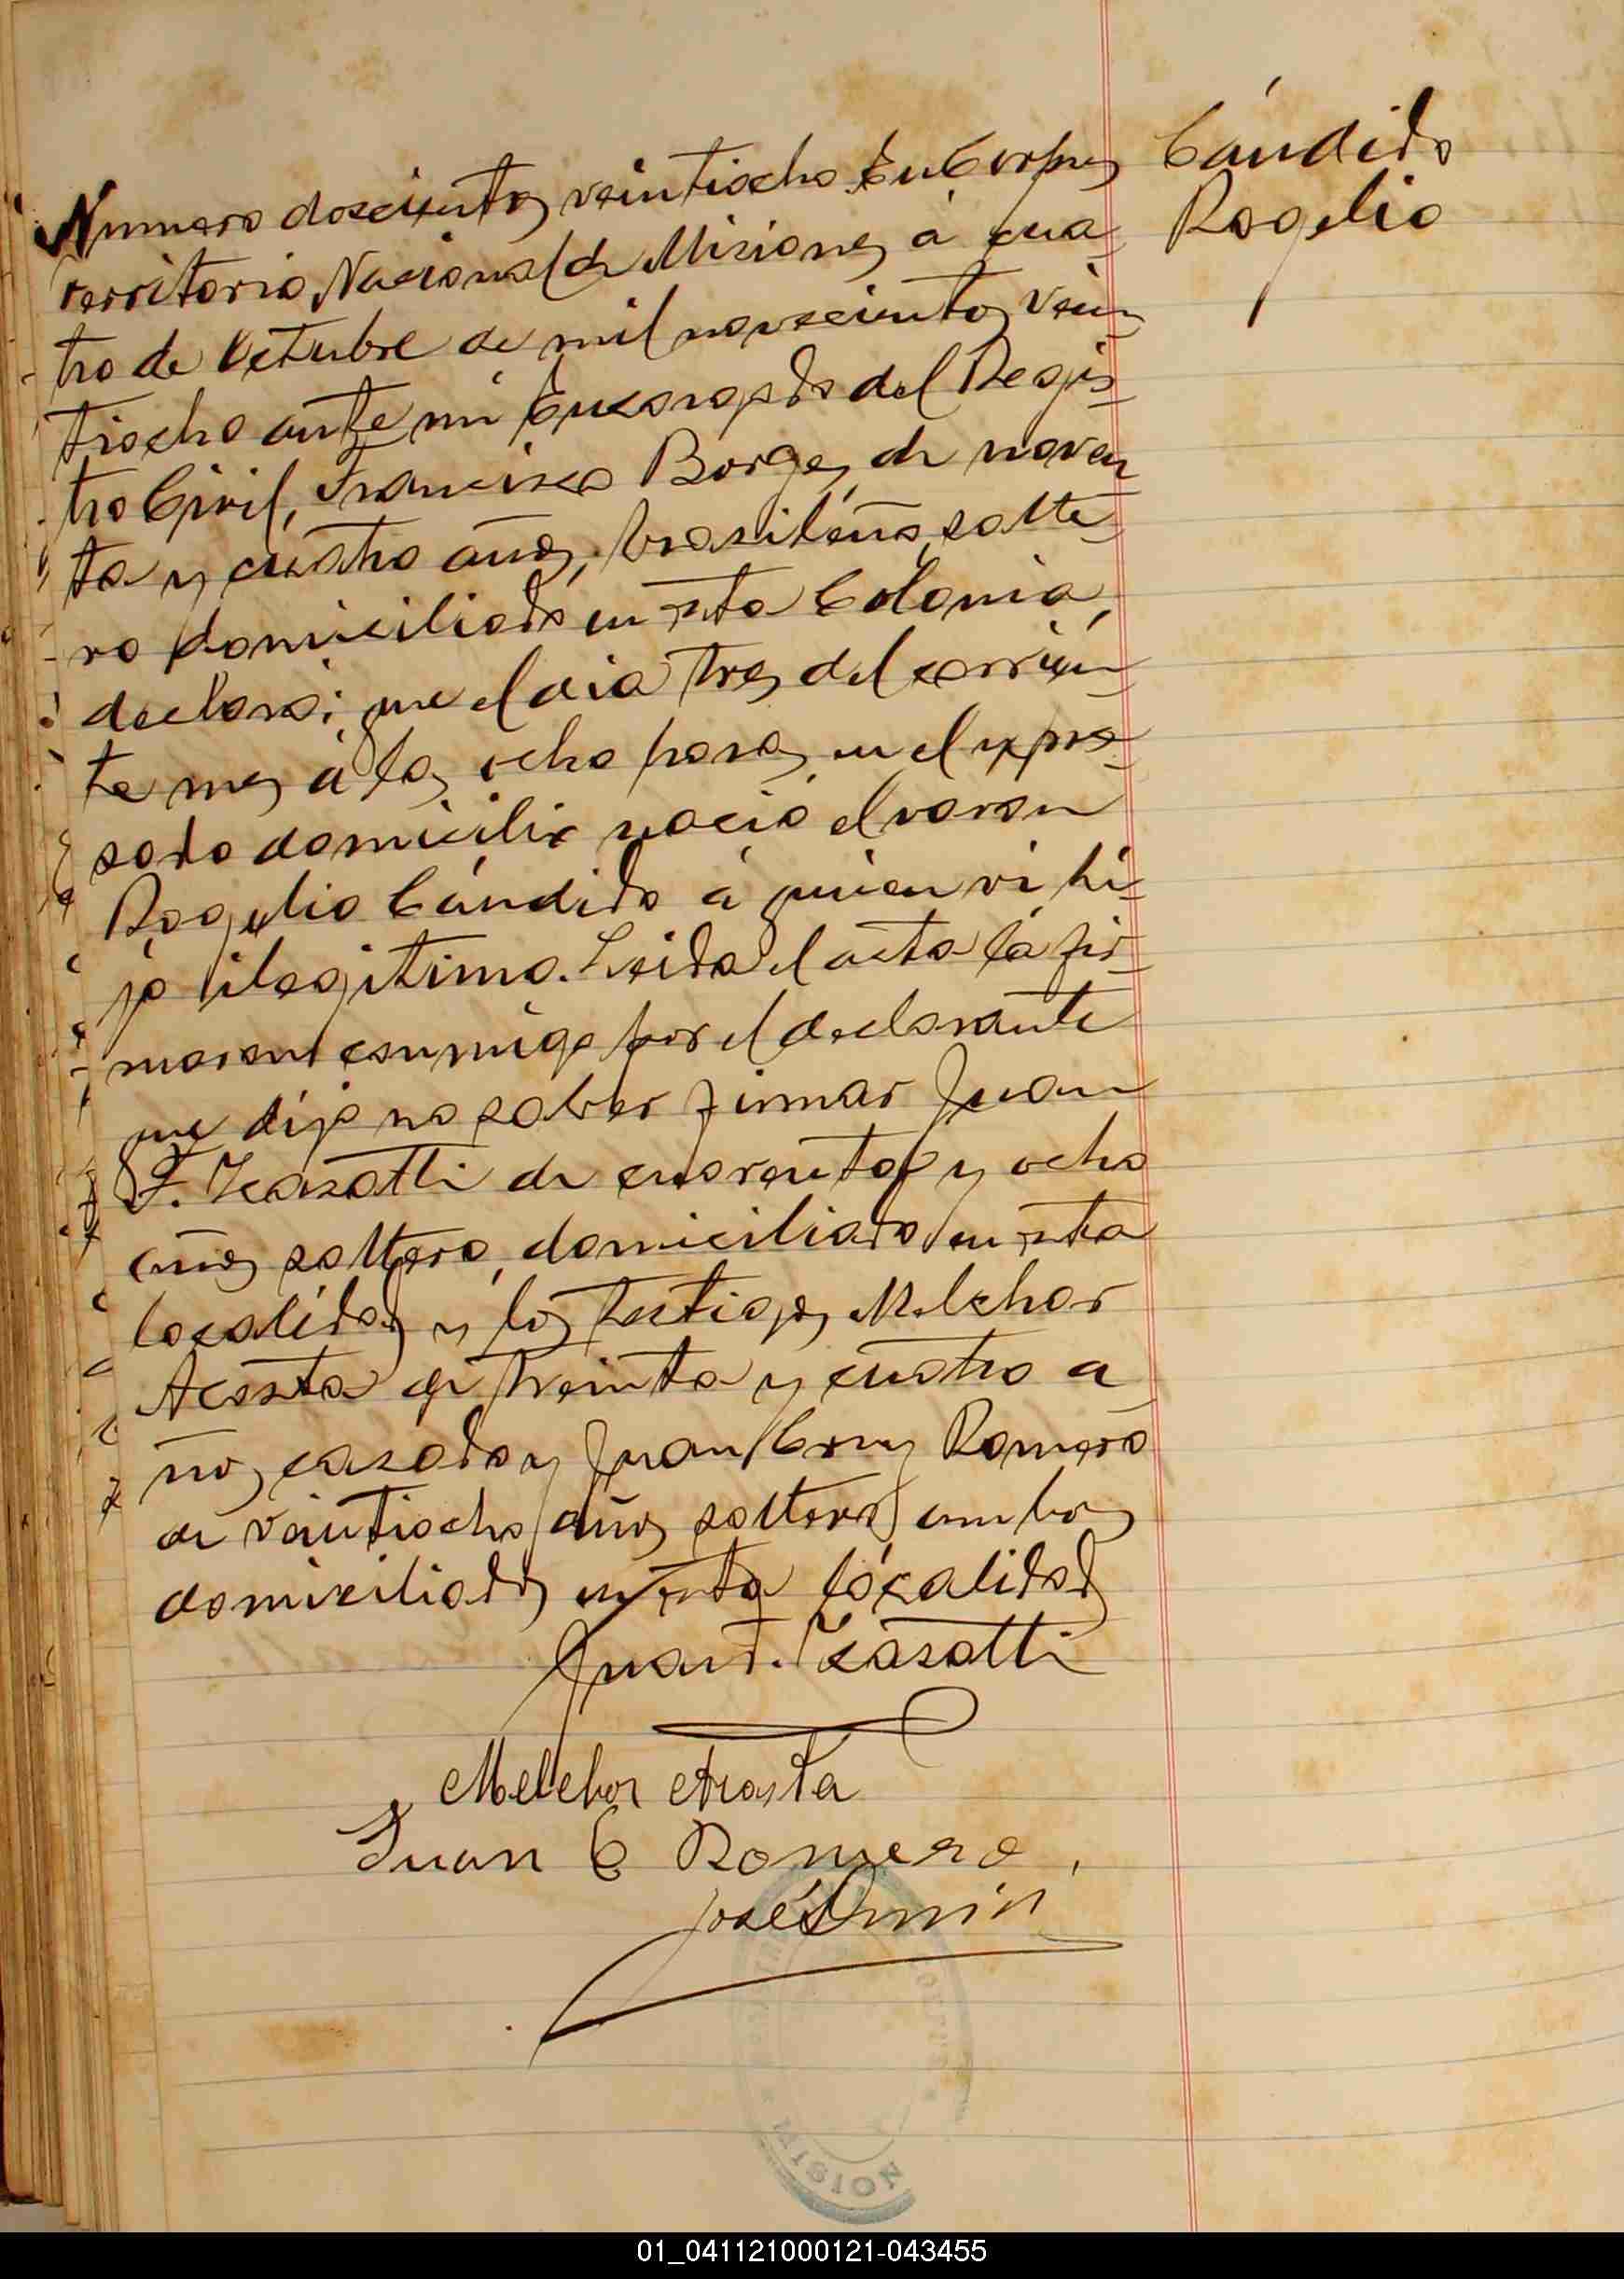 Cándido
Rogelio
Numero doscientos veintiocho En Corpus
Territorio Nacional de Misiones á cua
tro de Octubre de mil novecientos vein
tiocho ante mi Encargado del Regis
tro Civil, Francisco Borges de noven
ta y cuatro años, brasileño, solte
ro domiciliado en esta Colonia,
declaró: que el dia tres del corrien
te mes á las ocho horas en el expre
sado domicilio nació el varon
Rogelio Cándido á quien vi hi
jo ilegitimo. Leida el acta la fir
maron conmigo por el declarante
que dijo no saber firmar Juan
F. Casatti de cuarenta y ocho
años soltero, domiciliado en esta
localidad y los testigos Melchor
Acosta de treinta y cuatro a
ños casado y Juan Cruz Romero
de veintiocho años soltero ambos
domiciliados en esta localidad
Juan F. Casatti
Melchor Acosta
Juan C Romero
José
MISION
01_041121000121-043455